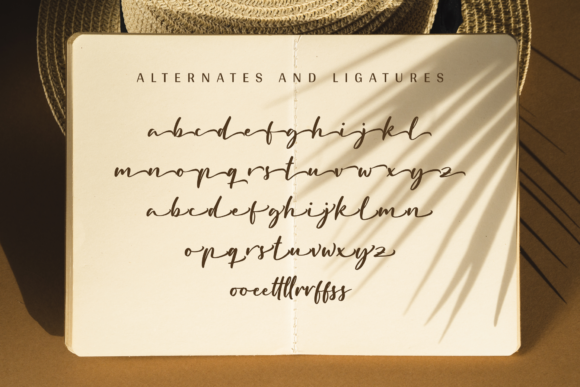 ALTERNATES AND LIGATURES
abcdefghijkl
mnopqrstuvwxyz
abcdefghijklmn
opqrstuvwxyz
ooeettllrrffss